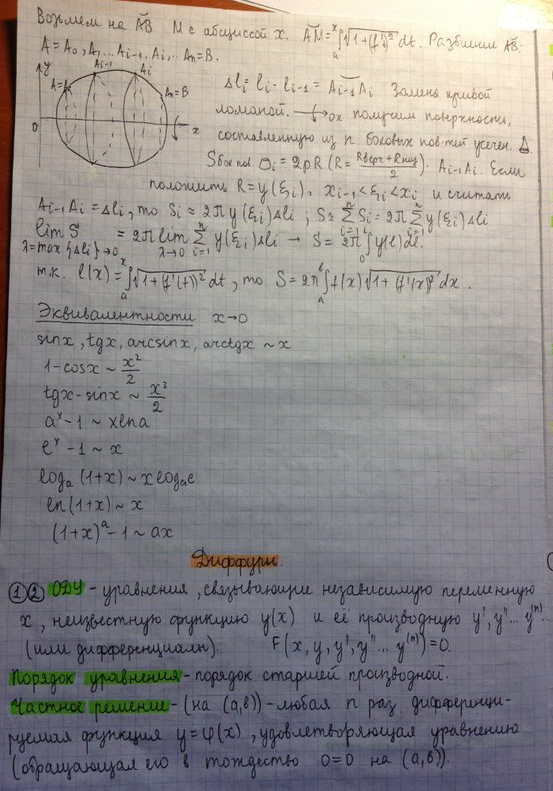 Возьмем на AB M с абсциссой x. AM = ∫ₐˣ √(1+(f')²) dt. Разбиение AB:
A = A₀, A₁ ... Aᵢ₋₁, Aᵢ, .. Aₙ = B.
y Aᵢ₋₁ Aᵢ
A=A₀ Aₙ=B
0 x
Δlᵢ = lᵢ - lᵢ₋₁ = Aᵢ₋₁Aᵢ Замена кривой
ломаной. ox получим поверхность,
составленную из n боковых пов-тей усечен. Δ
Sбок пов. σᵢ = 2pR (R = (Rверх + Rниж)/2). Aᵢ₋₁Aᵢ. Если
положить R = y(ξᵢ), xᵢ₋₁ < ξᵢ < xᵢ и считать
Aᵢ₋₁Aᵢ = Δlᵢ, то Sᵢ ≈ 2π y(ξᵢ) Δlᵢ ; S ≈ Σᵢ₌₁ⁿ Sᵢ = 2π Σᵢ₌₁ⁿ y(ξᵢ) Δlᵢ
lim S = 2π lim Σᵢ₌₁ⁿ y(ξᵢ) Δlᵢ → S = 2π ∫₀ˡ y(l) dl.
λ = max{Δlᵢ} → 0 λ→0
т.к. l(x) = ∫ₐˣ √(1+(f'(t))²) dt, то S = 2π ∫ₐᵇ f(x) √(1+(f'(x))²) dx.
Эквивалентности x→0
sinx, tgx, arcsinx, arctgx ~ x
1-cosx ~ x²/2
tgx - sinx ~ x³/2
aˣ - 1 ~ xlna
eˣ - 1 ~ x
logₐ(1+x) ~ x logₐe
ln(1+x) ~ x
(1+x)ᵃ - 1 ~ ax
Диффуры.
① ② ОДУ - уравнения, связывающие независимую переменную
x, неизвестную функцию y(x) и её производную y', y''... y⁽ⁿ⁾
(или дифференциалы). F(x, y, y', y''... y⁽ⁿ⁾) = 0.
Порядок уравнения - порядок старшей производной.
Частное решение - (на (a, b)) - любая n раз дифференци-
руемая функция y = φ(x), удовлетворяющая уравнению
(обращающая его в тождество 0=0 на (a, b)).